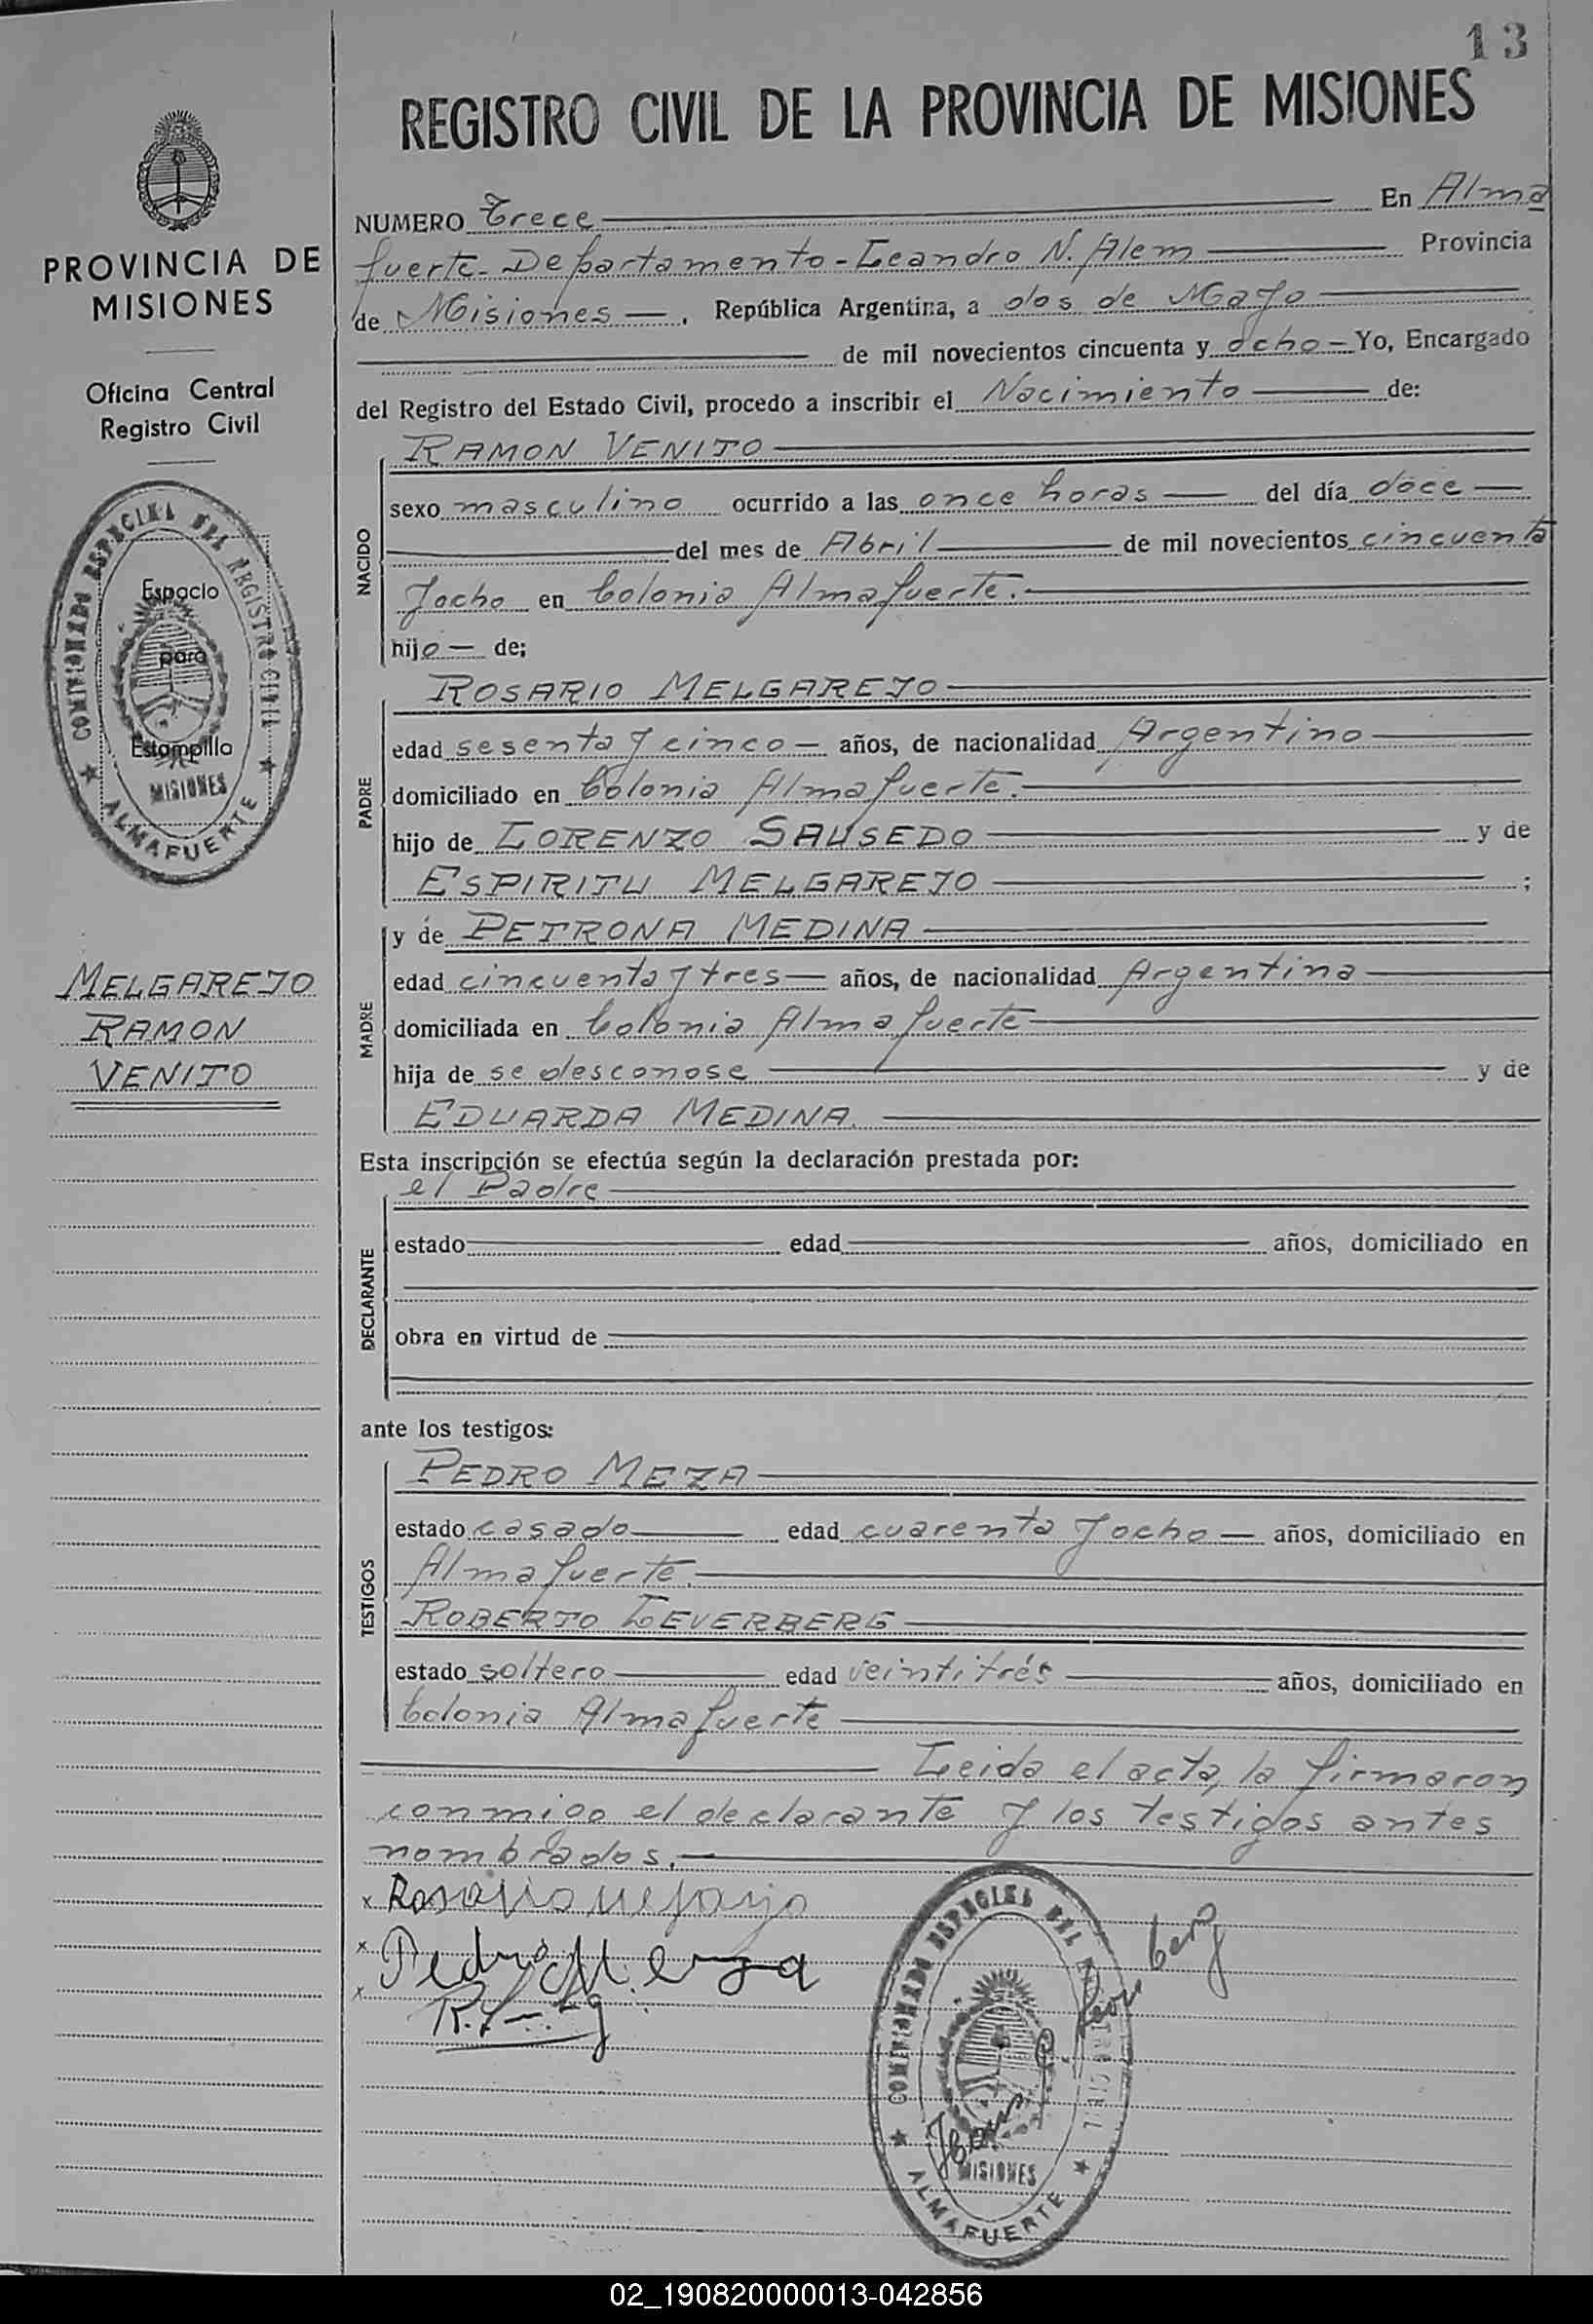 13
REGISTRO CIVIL DE LA PROVINCIA DE MISIONES
NUMERO Trece En Alma
fuerte - Departamento - Leandro N. Alem Provincia
de Misiones, República Argentina, a dos de Mayo
de mil novecientos cincuenta y ocho - Yo, Encargado
del Registro del Estado Civil, procedo a inscribir el Nacimiento de:
NACIDO
RAMON VENITO
sexo masculino ocurrido a las once horas del día doce
del mes de Abril de mil novecientos cincuenta
y ocho en Colonia Almafuerte.
hijo de;
PADRE
ROSARIO MELGAREJO
edad sesenta y cinco años, de nacionalidad Argentino
domiciliado en Colonia Almafuerte.
hijo de LORENZO SAUSEDO y de
ESPIRITU MELGAREJO ;
MADRE
y de PETRONA MEDINA
edad cincuenta y tres años, de nacionalidad Argentina
domiciliada en Colonia Almafuerte
hija de se desconose y de
EDUARDA MEDINA.
Esta inscripción se efectúa según la declaración prestada por:
DECLARANTE
el Padre
estado edad años, domiciliado en
obra en virtud de
ante los testigos:
TESTIGOS
PEDRO MEZA
estado casado edad cuarenta y ocho años, domiciliado en
Almafuerte.
ROBERTO LEVERBERG
estado soltero edad veintitrés años, domiciliado en
Colonia Almafuerte
Leida el acta, la firmaron
conmigo el declarante y los testigos antes
nombrados.
x Rosario
x Pedro Meza
x
COMISIONADO ESPECIAL DEL REGISTRO CIVIL
MISIONES
ALMAFUERTE
PROVINCIA DE
MISIONES
Oficina Central
Registro Civil
COMISIONADO ESPECIAL DEL REGISTRO CIVIL
Espacio
para
Estampilla
MISIONES
ALMAFUERTE
MELGAREJO
RAMON
VENITO
02_190820000013-042856